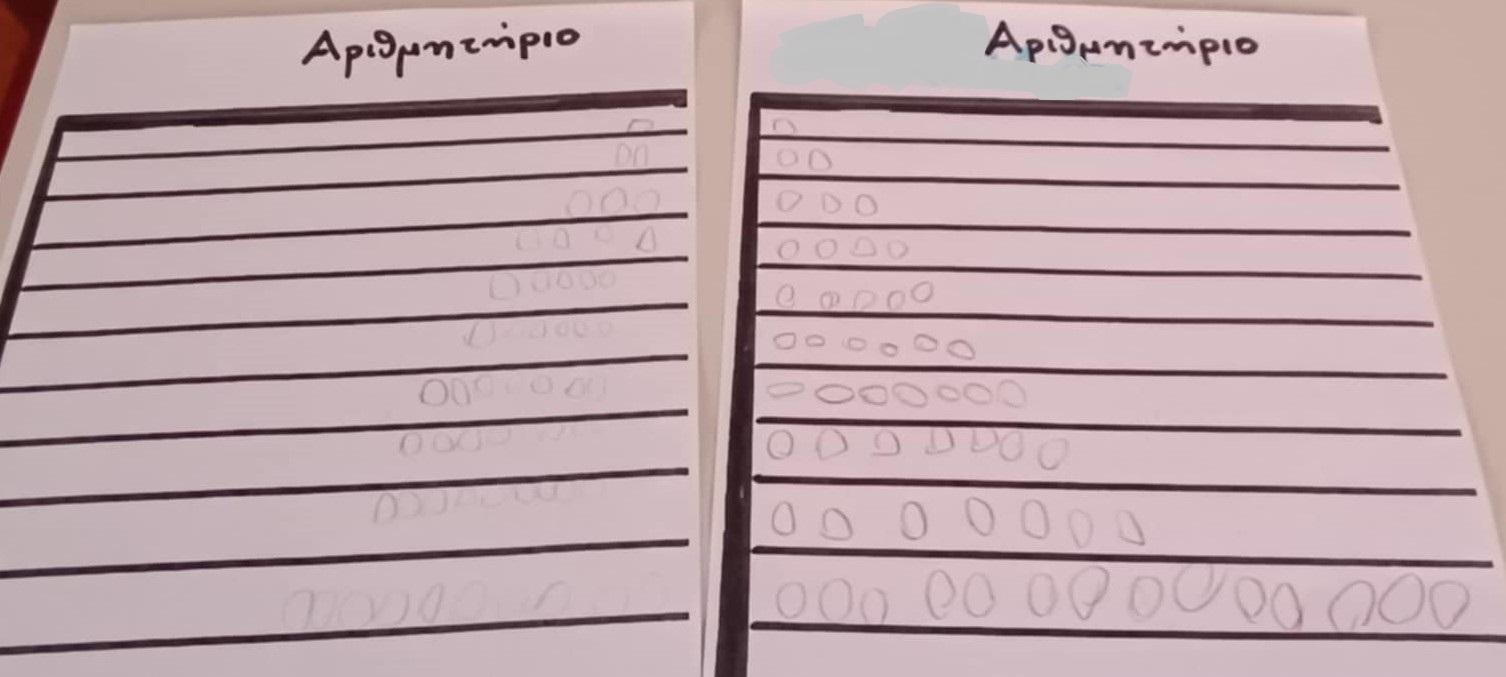 Αριθμητήριο
Αριθμητήριο